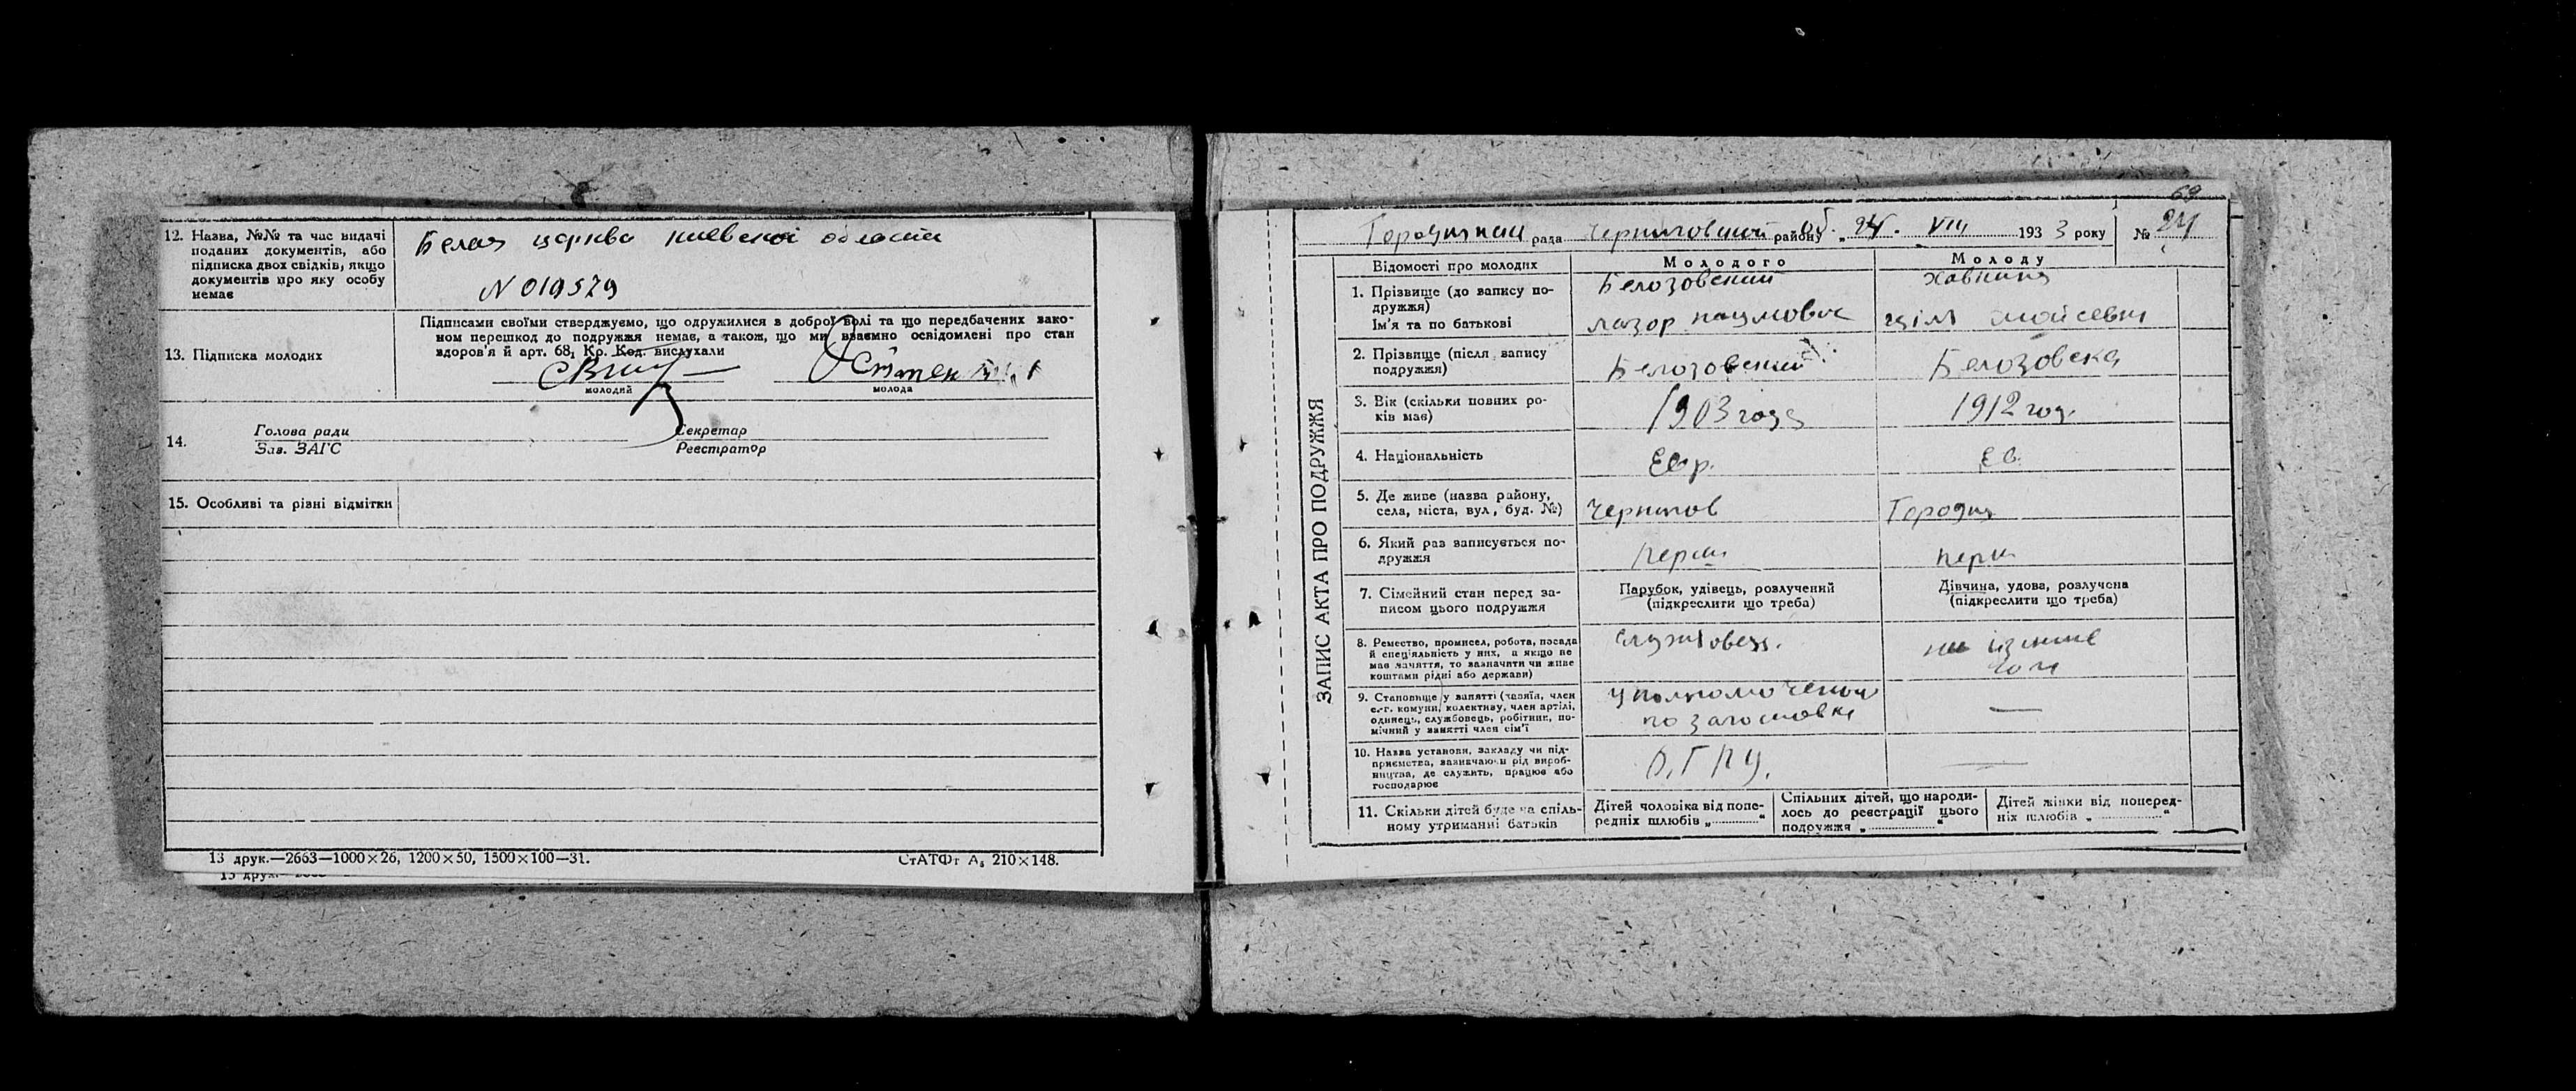 12. Назва, №№ та час видачі
поданих документів, або
підписка двох свідків, якщо
документів про яку особу
немає
Белая церква киевской области
N 019579
13. Підписка молодих
Підписами своїми стверджуємо, що одружилися в доброї волі та що передбачених зако-
ном перешкод до подружжя немає, а також, що ми взаємно освідомлені про стан
здоров'я й арт. 68, Кр. Код. вислухали
молодий
молода
14.
Голова ради
Зав. ЗАГС
Секретар
Реєстратор
15. Особливі та різні відмітки
13 друк.—2663—1000×26, 1200×50, 1500×100—31.
СтАТФт А₅ 210×148.
69
рада
району
24. VIII 1933 року
№ 24
ЗАПИС АКТА ПРО ПОДРУЖЖЯ
Відомості про молодих
Молодого
Молоду
1. Прізвище (до запису по-
дружжя)
Ім'я та по батькові
Белозовский
лазор наумович
Хавкина
ціля мойсевн
2. Прізвище (після запису
подружжя)
Белозовский
Белозовска
3. Вік (скільки повних ро-
ків має)
1903 года
1912 год
4. Національність
Евр.
Ев.
5. Де живе (назва району,
села, міста, вул, буд. №)
Чернигов
Городня
6. Який раз записується по-
дружжя
перш
перш
7. Сімейний стан перед за-
писом цього подружжя
Парубок, удівець, розлучений
(підкреслити що треба)
Дівчина, удова, розлучена
(підкреслити що треба)
8. Ремество, промисел, робота, посада
й спеціяльність у них, а якщо не
має заняття, то зазначити чи живе
коштами рідні або держави)
служовець.
9. Становище у занятті (хазяїн, член
с.-г. комуни, колективу, член артілі,
одинець, службовець, робітник, по-
мічний у занятті член сім'ї
уполномоченый
по заготовке
—
10. Назва установи, закладу чи під-
приємства, зазначаючи рід вироб-
ництва, де служить, працює або
господарює
О.Г.П.У.
—
11. Скільки дітей буде на спіль-
ному утриманні батьків
Дітей чоловіка від попе-
редніх шлюбів „..........“
Спільних дітей, що народи-
лось до реєстрації цього
подружжя „..............“
Дітей жінки від поперед-
ніх шлюбів „..............“